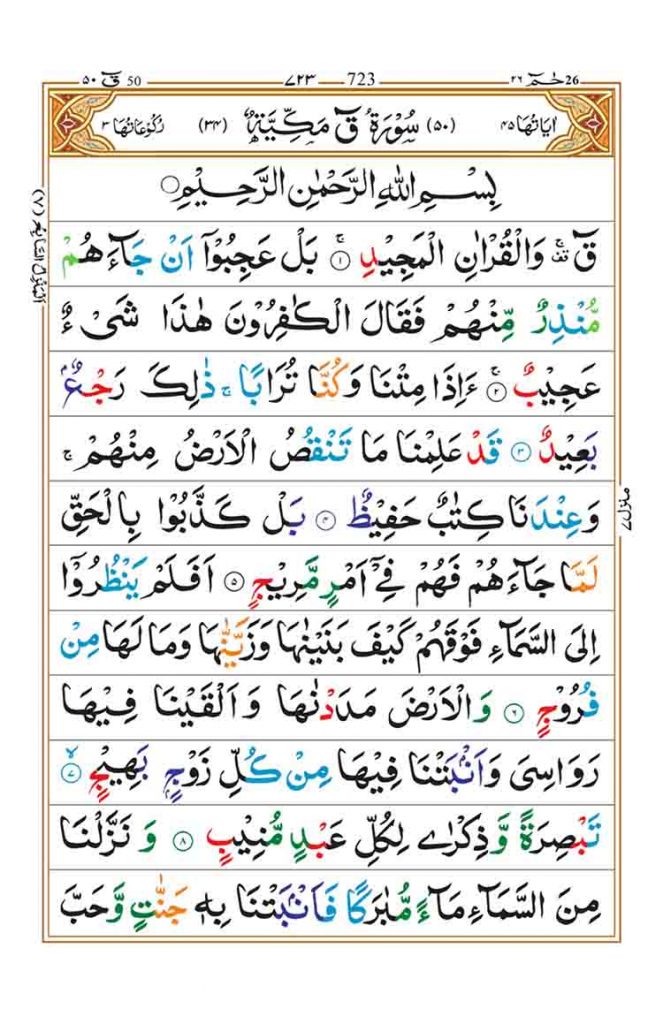 ٥٠ قٓ 50 ٧٢٣ 723 حٰمٓ 26 ٢٦
اٰیَاتُهَا ٤٥ (٥٠) سُوْرَةُ قٓ مَكِّیَّةٌ (٣٤) رُكُوْعَاتُهَا ٣
بِسْمِ اللّٰهِ الرَّحْمٰنِ الرَّحِیْمِ
قٓ ۚ۫ وَالْقُرْاٰنِ الْمَجِیْدِ ۚ۝۱ بَلْ عَجِبُوْۤا اَنْ جَآءَهُمْ
مُّنْذِرٌ مِّنْهُمْ فَقَالَ الْكٰفِرُوْنَ هٰذَا شَیْءٌ
عَجِیْبٌ ۚ۝۲ ءَاِذَا مِتْنَا وَكُنَّا تُرَابًا ۚ ذٰلِكَ رَجْعٌۢ
بَعِیْدٌ ۝۳ قَدْ عَلِمْنَا مَا تَنْقُصُ الْاَرْضُ مِنْهُمْ ۚ
وَعِنْدَنَا كِتٰبٌ حَفِیْظٌ ۝۴ بَلْ كَذَّبُوْا بِالْحَقِّ
لَمَّا جَآءَهُمْ فَهُمْ فِیْۤ اَمْرٍ مَّرِیْجٍ ۝۵ اَفَلَمْ یَنْظُرُوْۤا
اِلَی السَّمَآءِ فَوْقَهُمْ كَیْفَ بَنَیْنٰهَا وَزَیَّنّٰهَا وَمَا لَهَا مِنْ
فُرُوْجٍ ۝۶ وَالْاَرْضَ مَدَدْنٰهَا وَاَلْقَیْنَا فِیْهَا
رَوَاسِیَ وَاَنْۢبَتْنَا فِیْهَا مِنْ كُلِّ زَوْجٍۭ بَهِیْجٍ ۙ۝۷
تَبْصِرَةً وَّذِكْرٰی لِكُلِّ عَبْدٍ مُّنِیْبٍ ۝۸ وَنَزَّلْنَا
مِنَ السَّمَآءِ مَآءً مُّبٰرَكًا فَاَنْۢبَتْنَا بِهٖ جَنّٰتٍ وَّحَبَّ
اَلْمَنْزِلُ السَّابِعُ (٧)
منزل ٧